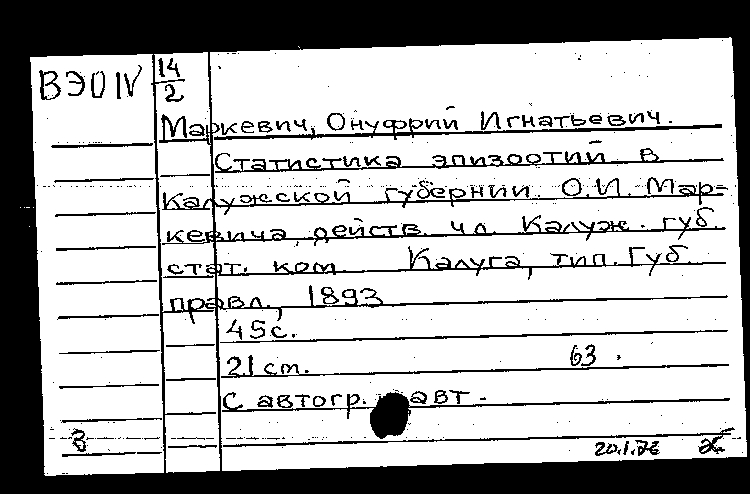 ВЭО IV 14/2
Маркевич, Онуфрий Игнатьевич.
Статистика эпизоотий в
Калужской губернии. О.И. Мар=
кевича, действ. чл. Калуж. губ.
стат. ком. Калуга, тип. Губ.
правл., 1893
45с.
21 ст. 63.
С автогр. авт.
20.1.76